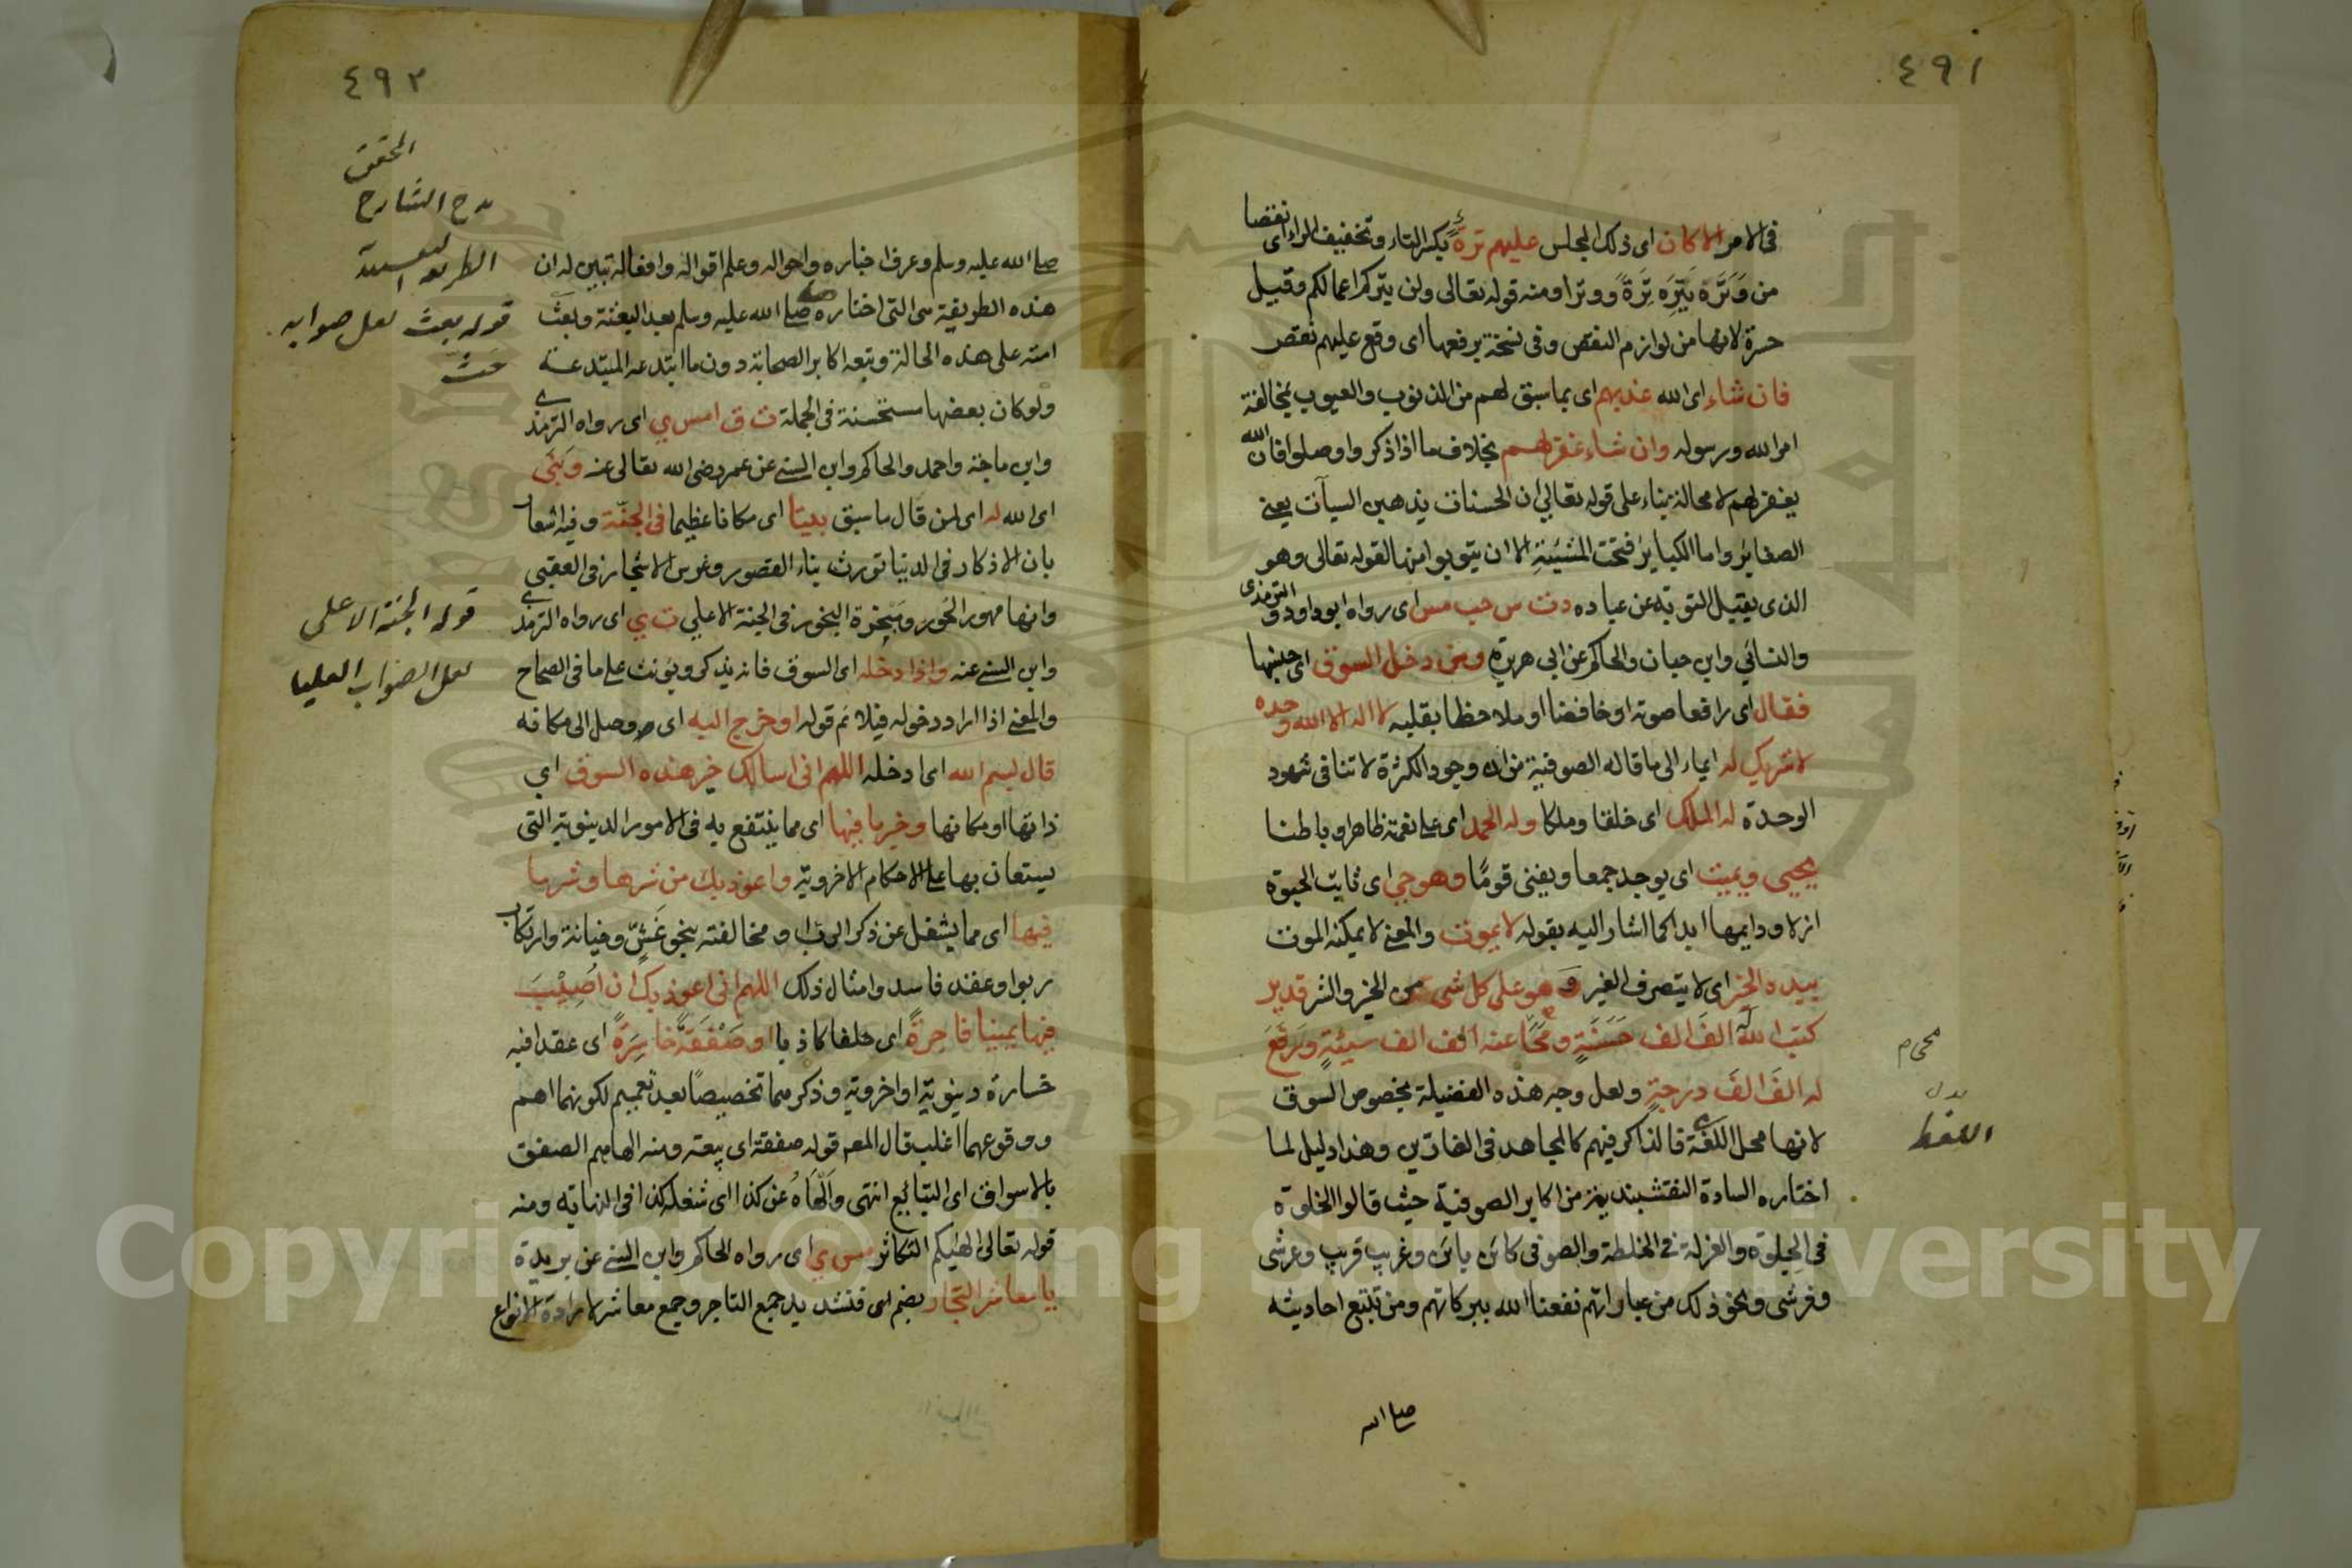 ٤٩١
في الامر الا كان اى ذلك المجلس عليهم ترة بكسر التاء وتخفيف الراء اى نقصا
من وَتَرَه يَتِرَه تِرَةً ووترا ومنه قوله تعالى ولن يتركم اعمالكم وقيل
حسرة لانها من لوازم النقص وفي نسخة برفعها اى وقع عليهم نقص
فان شاء اى الله عذبهم اى بما سبق لهم من الذنوب والعيوب بمخالفة
امر الله ورسوله وان شاء غفر لهم بخلاف ما اذا ذكروا وصلوا فان الله
يغفر لهم لا محالة بناء على قوله تعالى ان الحسنات يذهبن السيآت يعنى
الصغاير واما الكباير فتحت المشيئة الا ان يتوبوا منها لقوله تعالى وهو
الذى يقبل التوبة عن عباده د ت س حب مس اى رواه ابو داود والترمذى
والنسائي وابن حبان والحاكم عن ابى هريرة ومن دخل السوق اى جنسها
فقال اى رافعا صوته او خافضا او ملاحظا بقلبه لا اله الا الله وحده
لا شريك له ايماء الى ما قاله الصوفية من ان وجود الكثرة لا تنافى شهود
الوحدة له الملك اى خلقا وملكا وله الحمد اى على نعمته ظاهرا وباطنا
يحيى ويميت اى يوجد جمعا ويفنى قومًا وهو حي اى ثابت الحيوة
ازلا ودايمها ابدا كما اشار اليه بقوله لا يموت والمعنى لا يمكنه الموت
بيده الخير اى لا يتصرف الغير وَهو على كل شىء من الخير والشر قدير
كتب الله له الفَ الف حَسَنَةٍ ومَحَا عنه الف الف سيئةٍ ورَفَعَ
له الفَ الفَ درجةٍ ولعل وجه هذه الفضيلة بخصوص السوق
لانها محل الغفلة فالذاكر فيهم كالمجاهد فى الغارين وهذا دليل لما
اختاره السادة النقشبندية من اكابر الصوفية حيث قالوا الخلوة
فى الجلوة والعزلة فى الخلطة والصوفى كائن بائن وغريب قريب وعرشى
وفرشى ونحو ذلك من عباراتهم نفعنا الله ببركاتهم ومن تتبع احاديثه
صلى الله
محى م
بدل
اللغط
٤٩٢
صلى الله عليه وسلم وعرف اخباره واحواله وعلم اقواله وافعاله تبين له ان
هذه الطريقة هى التى اختاره صلى الله عليه وسلم بعد البعثة وبعث
امته على هذه الحالة وتبعه اكابر الصحابة دون ما ابتدعه المبتدعة
ولو كان بعضها مستحسنة فى الجملة ت ق ا مس ي اى رواه الترمذى
وابن ماجة واحمد والحاكم وابن السنى عن عمر رضى الله تعالى عنه وبَنَى
اى الله له اى لمن قال ما سبق بيتا اى مكانا عظيما فى الجنّة وفيه اشعار
بان الاذكار فى الدنيا تورث بناء القصور وغرس الاشجار فى العقبى
وانها مهور الحور ومبخرة البخور فى الجنة الاعلى ت ي اى رواه الترمذى
وابن السنى عنه واذا دخله اى السوق فانه يذكر ويؤنث على ما فى الصحاح
والمعنى اذا اراد دخوله فيلائم قوله او خرج اليه اى وصل الى مكانه
قال بسم الله اى ادخله اللهم انى اسالك خير هذه السوق اي
ذاتها او مكانها وخير ما فيها اى مما ينتفع به فى الامور الدينوية التى
يستعان بها على الاحكام الاخروية واعوذ بك من شرها وشر ما
فيها اى مما يشغل عن ذكر الرب او مخالفته بنحو غَشٍّ وخيانة وارتكاب
ربوا وعقد فاسد وامثال ذلك اللهم انى اعوذ بك ان اُصِيْبَ
فيها يمينا فاجرةً اى حلفا كاذبا او صَفْقَةً خاسِرَةً اى عقدا فيه
خسارة دينوية او اخروية وذكرهما تخصيصًا بعد تعميم لكونهما اهم
ووقوعهما اغلب قال المص قوله صفقة اى بيعة ومنه الهاهم الصفق
بالاسواق اى التبايع انتهى والْهَاهُ عن كذا اى شغله كذا فى النهاية ومنه
قوله تعالى الهيكم التكاثر مس ي اى رواه الحاكم وابن السنى عن بريدة
يا معاشر التجار بضم اى فتشديد جمع التاجر وجمع معاشر لارادة الانواع
المحقق
مدح الشارح
قوله بعث لعل صوابه
حثّ
قوله الجنة الاعلى
لعل الصواب العليا
Copyright © King Saud University